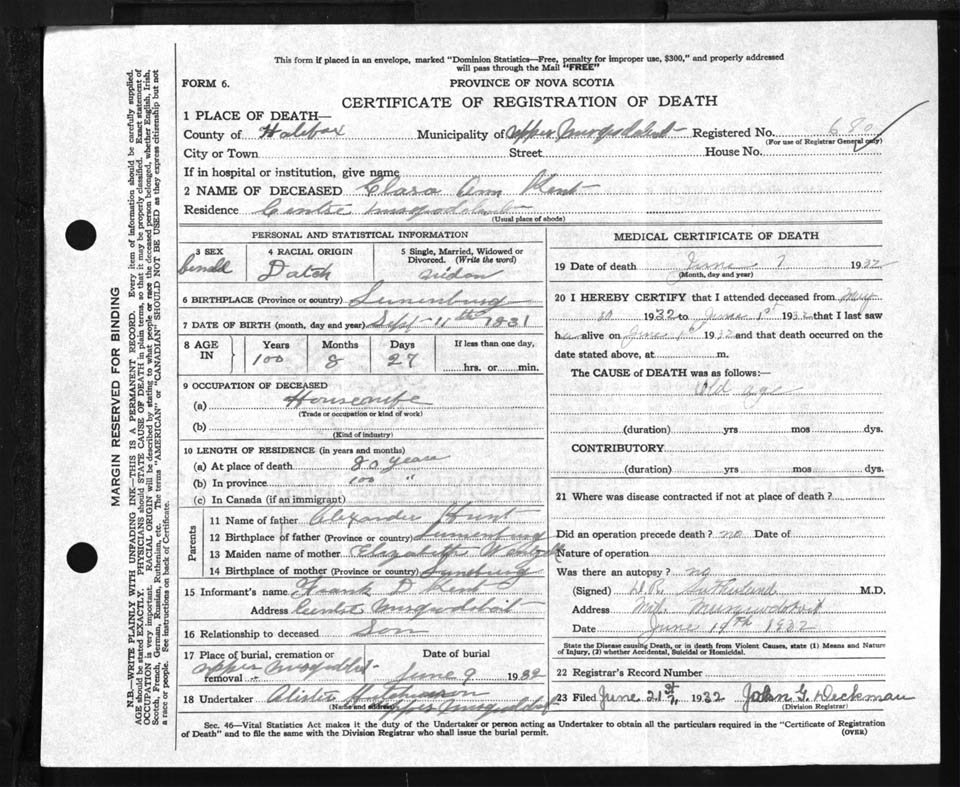 This form if placed in an envelope, marked "Dominion Statistics—Free, penalty for improper use, $300," and properly addressed
will pass through the Mail "FREE"
FORM 6.
PROVINCE OF NOVA SCOTIA
CERTIFICATE OF REGISTRATION OF DEATH
1 PLACE OF DEATH—
County of Halifax Municipality of Upper Musquodoboit Registered No.
(For use of Registrar General only)
City or Town Street House No.
If in hospital or institution, give name
2 NAME OF DECEASED Clara Ann Kent
Residence Centre Musquodoboit
(Usual place of abode)
PERSONAL AND STATISTICAL INFORMATION
3 SEX 4 RACIAL ORIGIN 5 Single, Married, Widowed or
Divorced. (Write the word)
Dutch
6 BIRTHPLACE (Province or country) Lunenburg
7 DATE OF BIRTH (month, day and year) Sept 11th 1831
8 AGE IN Years Months Days If less than one day,
100 8 27 hrs. or min.
9 OCCUPATION OF DECEASED
(a) Housewife
(Trade or occupation or kind of work)
(b)
(Kind of industry)
10 LENGTH OF RESIDENCE (in years and months)
(a) At place of death 80 years
(b) In province 100 "
(c) In Canada (if an immigrant)
Parents
11 Name of father Alexander Hunt
12 Birthplace of father (Province or country) Lunenburg
13 Maiden name of mother Elizabeth
14 Birthplace of mother (Province or country) Lunenburg
15 Informant's name Frank D Kent
Address Centre Musquodoboit
16 Relationship to deceased Son
17 Place of burial, cremation or removal Date of burial
Upper Musquodoboit June 9 1932
18 Undertaker Hutchinson
(Name and address) Upper Musquodoboit
MEDICAL CERTIFICATE OF DEATH
19 Date of death June 7 1932
(Month, day and year)
20 I HEREBY CERTIFY that I attended deceased from May
1932 to June 1st 1932 that I last saw
her alive on June 1st 1932 and that death occurred on the
date stated above, at m.
The CAUSE of DEATH was as follows:—
Old age
(duration) yrs mos dys.
CONTRIBUTORY
(duration) yrs mos dys.
21 Where was disease contracted if not at place of death?
Did an operation precede death? no Date of
Nature of operation
Was there an autopsy? no
(Signed) Sutherland M.D.
Address Mid. Musquodoboit
Date June 19th 1932
State the Disease causing Death, or in Death from Violent Causes, state (1) Means and Nature
of Injury, (2) whether Accidental, Suicidal or Homicidal.
22 Registrar's Record Number
23 Filed June 21st 1932 John G. Dickman
(Division Registrar)
Sec. 46—Vital Statistics Act makes it the duty of the Undertaker or person acting as Undertaker to obtain all the particulars required in the "Certificate of Registration
of Death" and to file the same with the Division Registrar who shall issue the burial permit.
(OVER)
MARGIN RESERVED FOR BINDING
N.B.—WRITE PLAINLY WITH UNFADING INK—THIS IS A PERMANENT RECORD. Every item of information should be carefully supplied.
AGE should be stated EXACTLY. PHYSICIANS should STATE CAUSE OF DEATH in plain terms, so that it may be properly classified. Exact statement of
OCCUPATION is very important. RACIAL ORIGIN will be described by stating to what people or race the deceased person belonged, whether English, Irish,
Scotch, French, German, Russian, Ruthenian, etc. The terms "AMERICAN" or "CANADIAN" SHOULD NOT BE USED as they express citizenship but not
a race or people. See instructions on back of Certificate.